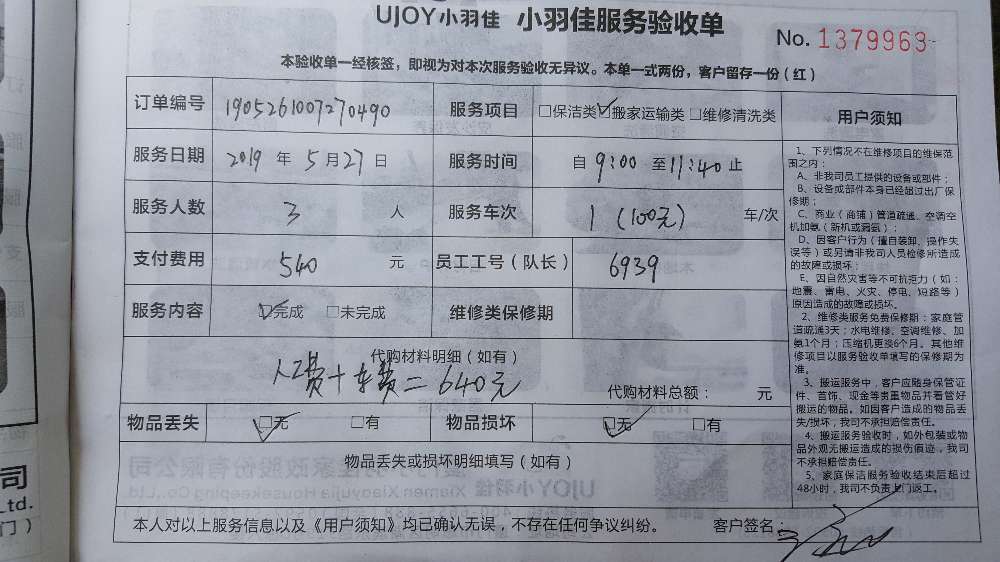 UJOY小羽佳 小羽佳服务验收单
No. 1379963
本验收单一经核签，即视为对本次服务验收无异议。本单一式两份，客户留存一份（红）
订单编号 1905261007270490 服务项目 □保洁类☑搬家运输类□维修清洗类
服务日期 2019 年 5 月 27 日 服务时间 自 9:00 至 11:40 止
服务人数 3 人 服务车次 1 (100元) 车/次
支付费用 540 元 员工工号（队长） 6939
服务内容 ☑完成 □未完成 维修类保修期
代购材料明细（如有）
人工费+车费=640元
代购材料总额： 元
物品丢失 ☑无 □有 物品损坏 ☑无 □有
物品丢失或损坏明细填写（如有）
本人对以上服务信息以及《用户须知》均已确认无误，不存在任何争议纠纷。 客户签名：
用户须知
1、下列情况不在维修项目的维保范
围之内：
A、非我司员工提供的设备或部件；
B、设备或部件本身已经超过出厂保
修期；
C、商业（商铺）管道疏通、空调空
机加氨（新机或漏氨）；
D、因客户行为（擅自装卸、操作失
误等）或另请非我司人员检修所造成
的故障或损坏；
E、因自然灾害等不可抗拒力（如：
地震、雷电、火灾、停电、短路等）
原因造成的故障或损坏。
2、维修类服务免费保修期：家庭管
道疏通3天；水电维修、空调维修、加
氨1个月；压缩机更换6个月。其他维
修项目以服务验收单填写的保修期为
准。
3、搬运服务中，客户应随身保管证
件、首饰、现金等贵重物品并看管好
搬运的物品。如因客户造成的物品丢
失/损坏，我司不承担赔偿责任。
4、搬运服务验收时，如外包装或物
品外观无搬运造成的损伤痕迹，我司
不承担赔偿责任。
5、家庭保洁服务验收结束后超过
48小时，我司不负责上门返工。
司
Ltd.
门）